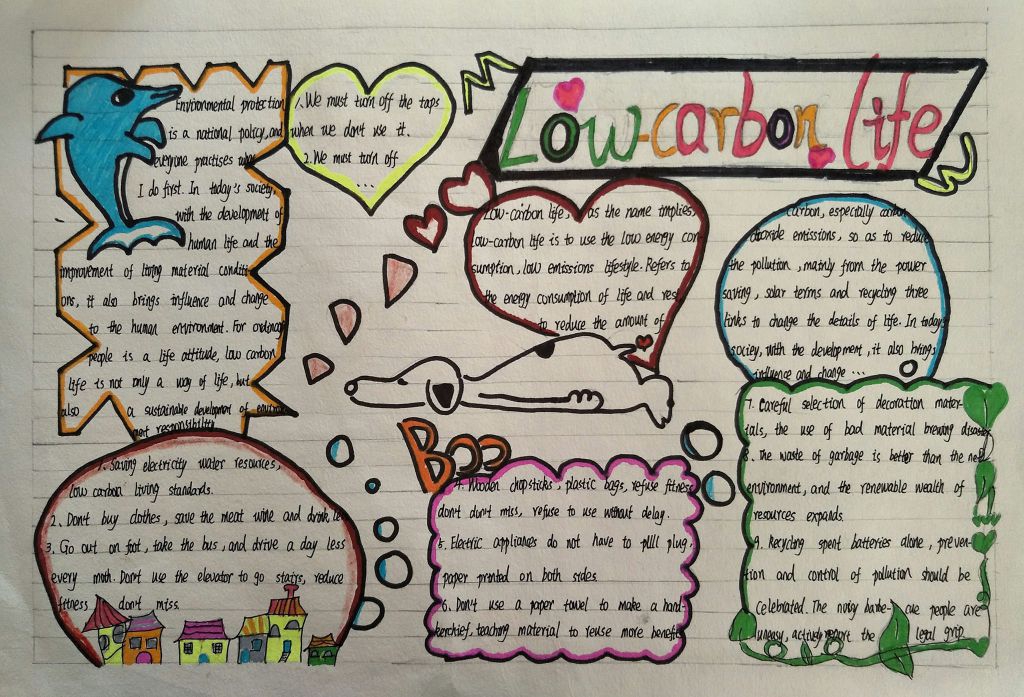 Low-carbon life
Environmental protection
is a national policy, and
everyone practises what
I do first. In today's society,
with the development of
human life and the
improvement of living material conditi-
ons, it also brings influence and change
to the human environment. For ordinary
people is a life attitude, low carbon
life is not only a way of life, but
also a sustainable development of environ
ment responsibility
1. We must turn off the taps
when we don't use it.
2. We must turn off
....
Low-carbon life, as the name implies,
low-carbon life is to use the low energy con-
sumption, low emissions lifestyle. Refers to
the energy consumption of life and rest
to reduce the amount of
carbon, especially carbon
dioxide emissions, so as to reduce
the pollution, mainly from the power
saving, solar terms and recycling three
links to change the details of life. In today
sociey, with the development, it also brings
influence and change ...
Boo
1. Saving electricity water resources,
low carbon living standards.
2. Don't buy clothes, save the meat wine and drink,
3. Go out on foot, take the bus, and drive a day less
every moth. Don't use the elevator to go stairs, reduce
fitness don't miss.
4. Wooden chopsticks, plastic bags, refuse fitness
don't don't miss, refuse to use without delay.
5. Electric appliances do not have to plll plug,
paper printed on both sides.
6. Don't use a paper towel to make a hand-
kerchief, teaching material to reuse more benefits
7. Careful selection of decoration mater-
ials, the use of bad material brewing disaster
8. The waste of garbage is better than the new
environment, and the renewable wealth of
resources expands.
9. Recycling spent batteries alone, preven-
tion and control of pollution should be
Celebrated. The noisy barbe- cue people are
uneasy, actively report the legal grip